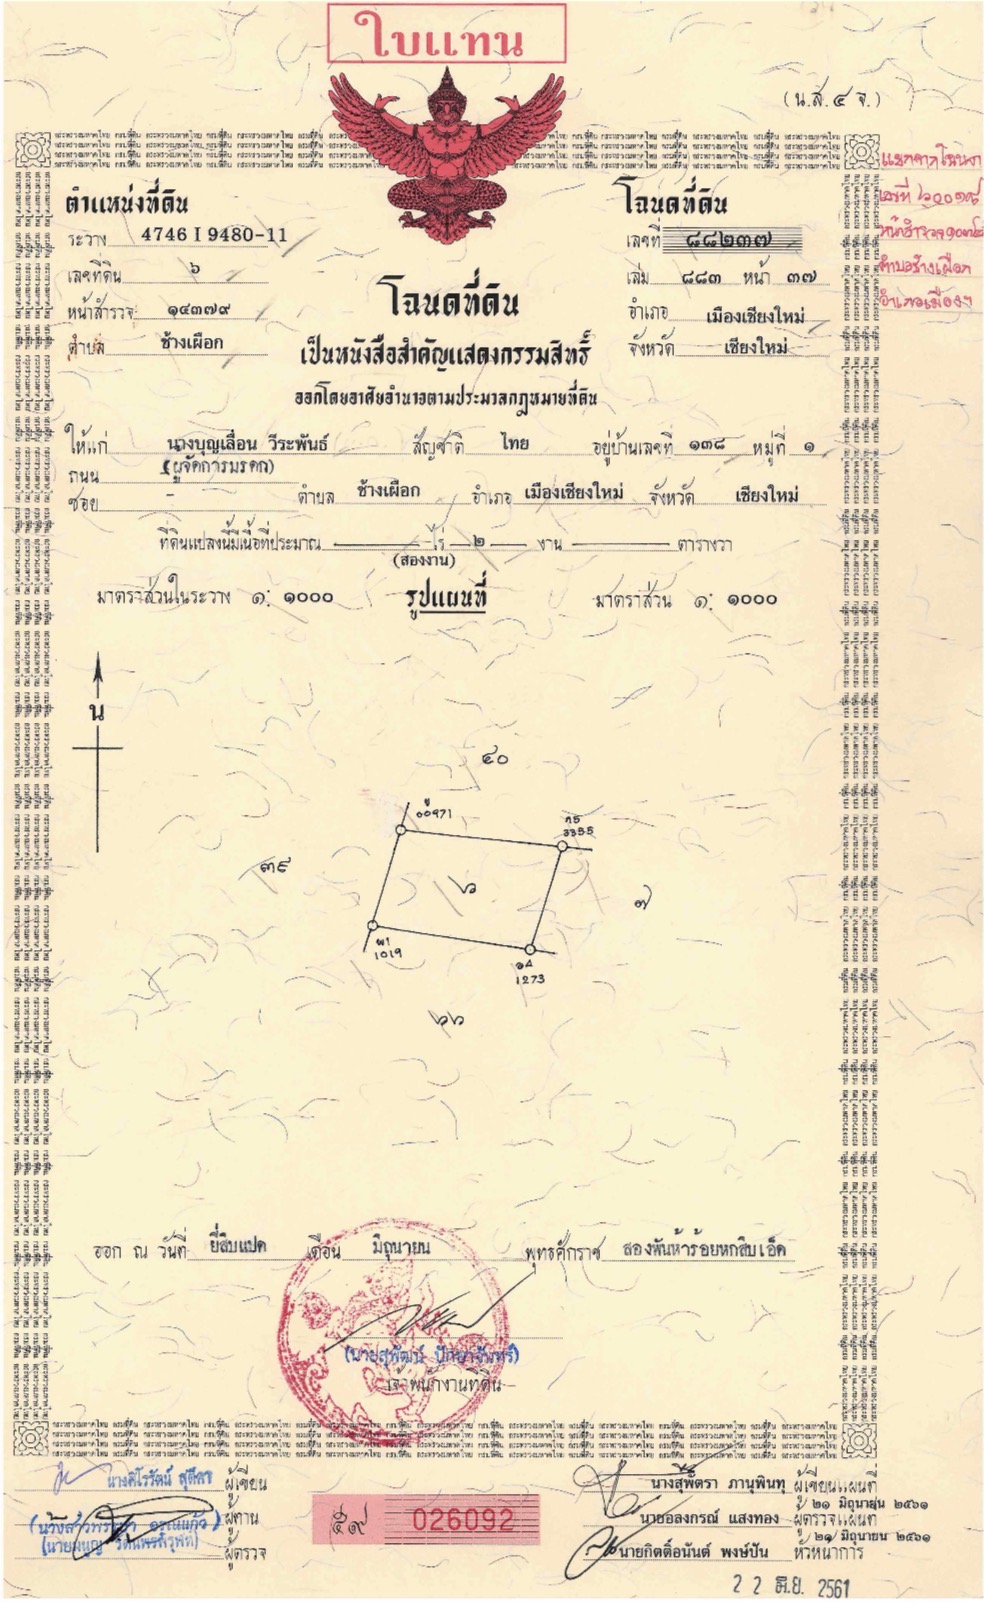 ใบแทน
(น.ส.๔ จ.)
ตำแหน่งที่ดิน
ระวาง 4746 I 9480-11
เลขที่ดิน ๖
หน้าสำรวจ ๑๔๓๗๙
ตำบล ช้างเผือก
โฉนดที่ดิน
เลขที่ ๘๘๒๓๗
เล่ม ๘๘๓ หน้า ๓๗
อำเภอ เมืองเชียงใหม่
จังหวัด เชียงใหม่
ตำบลช้างเผือก
อำเภอเมืองฯ
โฉนดที่ดิน
เป็นหนังสือสำคัญแสดงกรรมสิทธิ์
ออกโดยอาศัยอำนาจตามประมวลกฎหมายที่ดิน
ให้แก่ นางบุญเลื่อน วีระพันธ์ สัญชาติ ไทย อยู่บ้านเลขที่ ๑๓๘ หมู่ที่ ๑
ถนน (ผู้จัดการมรดก)
ซอย - ตำบล ช้างเผือก อำเภอ เมืองเชียงใหม่ จังหวัด เชียงใหม่
ที่ดินแปลงนี้มีเนื้อที่ประมาณ — ไร่ ๒ งาน — ตารางวา
(สองงาน)
มาตราส่วนในระวาง ๑: ๑๐๐๐ รูปแผนที่ มาตราส่วน ๑: ๑๐๐๐
น
๔๐
00971
3355
๓๙
๖
๗
1019
1273
๖๖
ออก ณ วันที่ ยี่สิบแปด เดือน มิถุนายน พุทธศักราช สองพันห้าร้อยหกสิบเอ็ด
(นายสุพัฒน์ ปักษาจันทร์)
เจ้าพนักงานที่ดิน
ผู้เขียน
ผู้ทาน
ผู้ตรวจ
๕๙ 026092
นางสุพัตรา ภานุพินทุ ผู้เขียนแผนที่
๒๑ มิถุนายน ๒๕๖๑
นายอลงกรณ์ แสงทอง ผู้ตรวจแผนที่
๒๑ มิถุนายน ๒๕๖๑
นายกิตติ์อนันต์ พงษ์ปัน หัวหน้าการ
2 2 มิ.ย. 2561